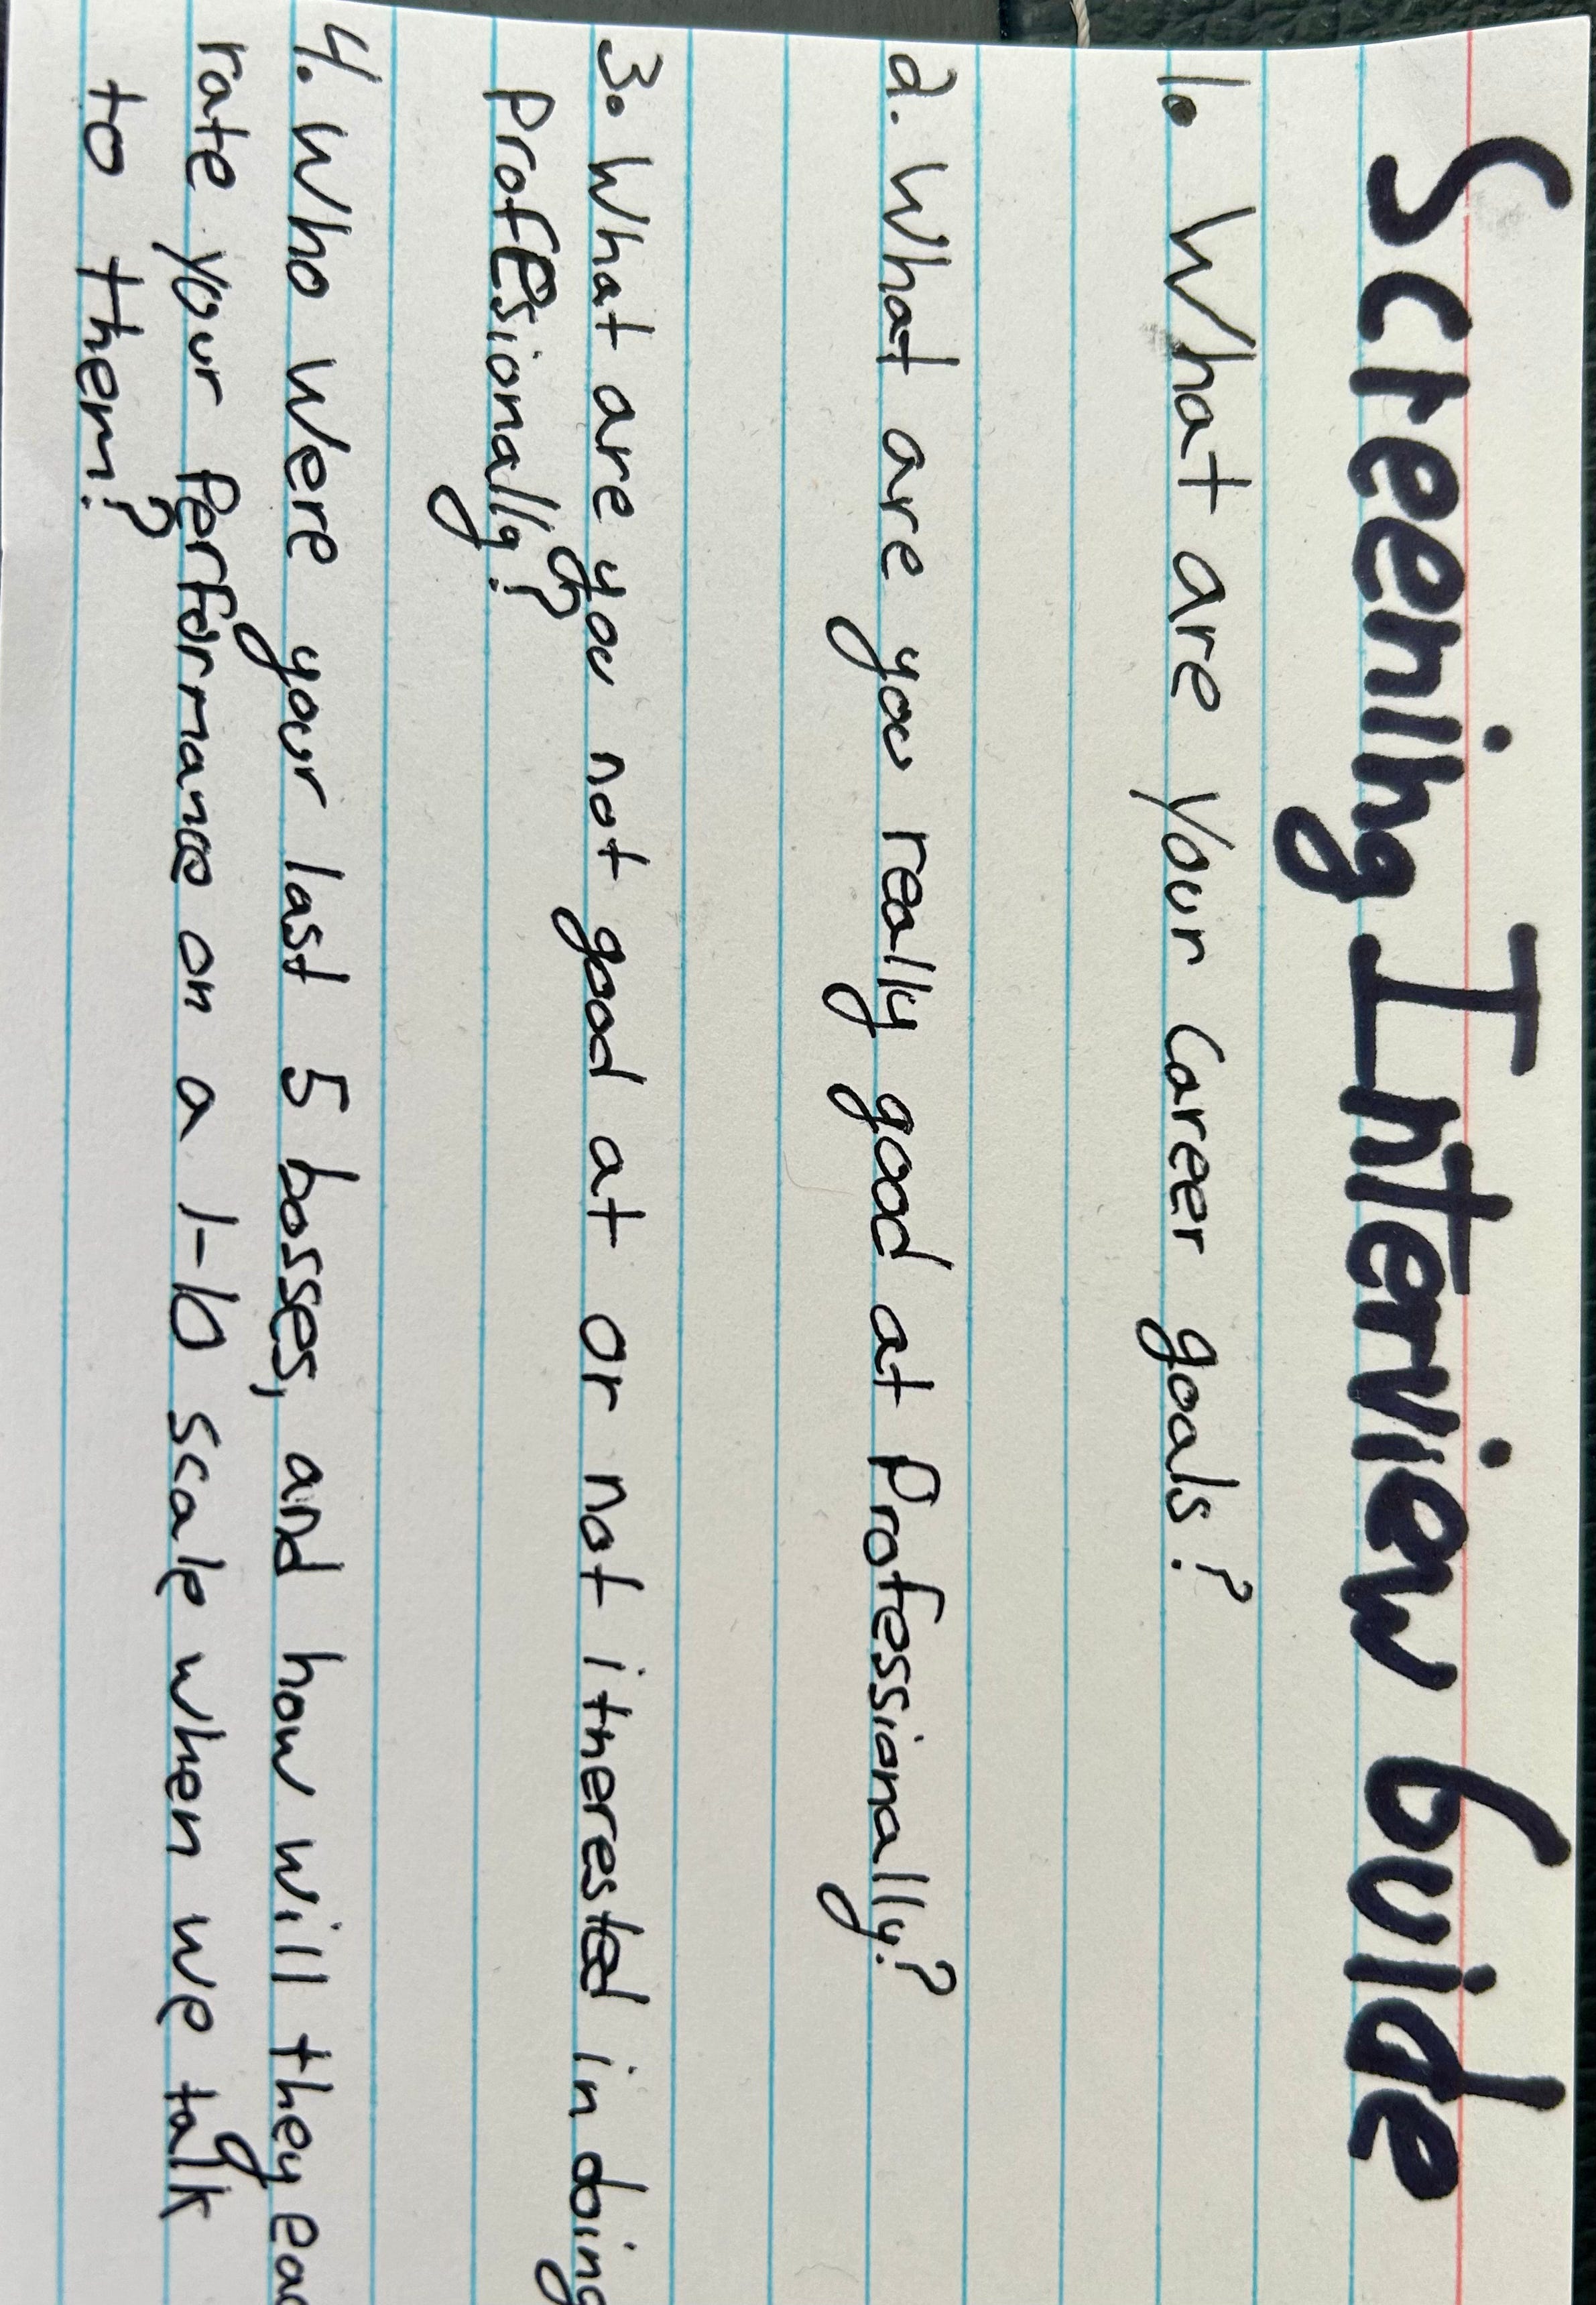 Screening Interview Guide
1. What are your career goals?
2. What are you really good at Professionally?
3. What are you not good at or not itnerested in doing
Profesionally?
4. Who were your last 5 bosses, and how will they eac
rate your Performance on a 1-10 scale when we talk
to them?